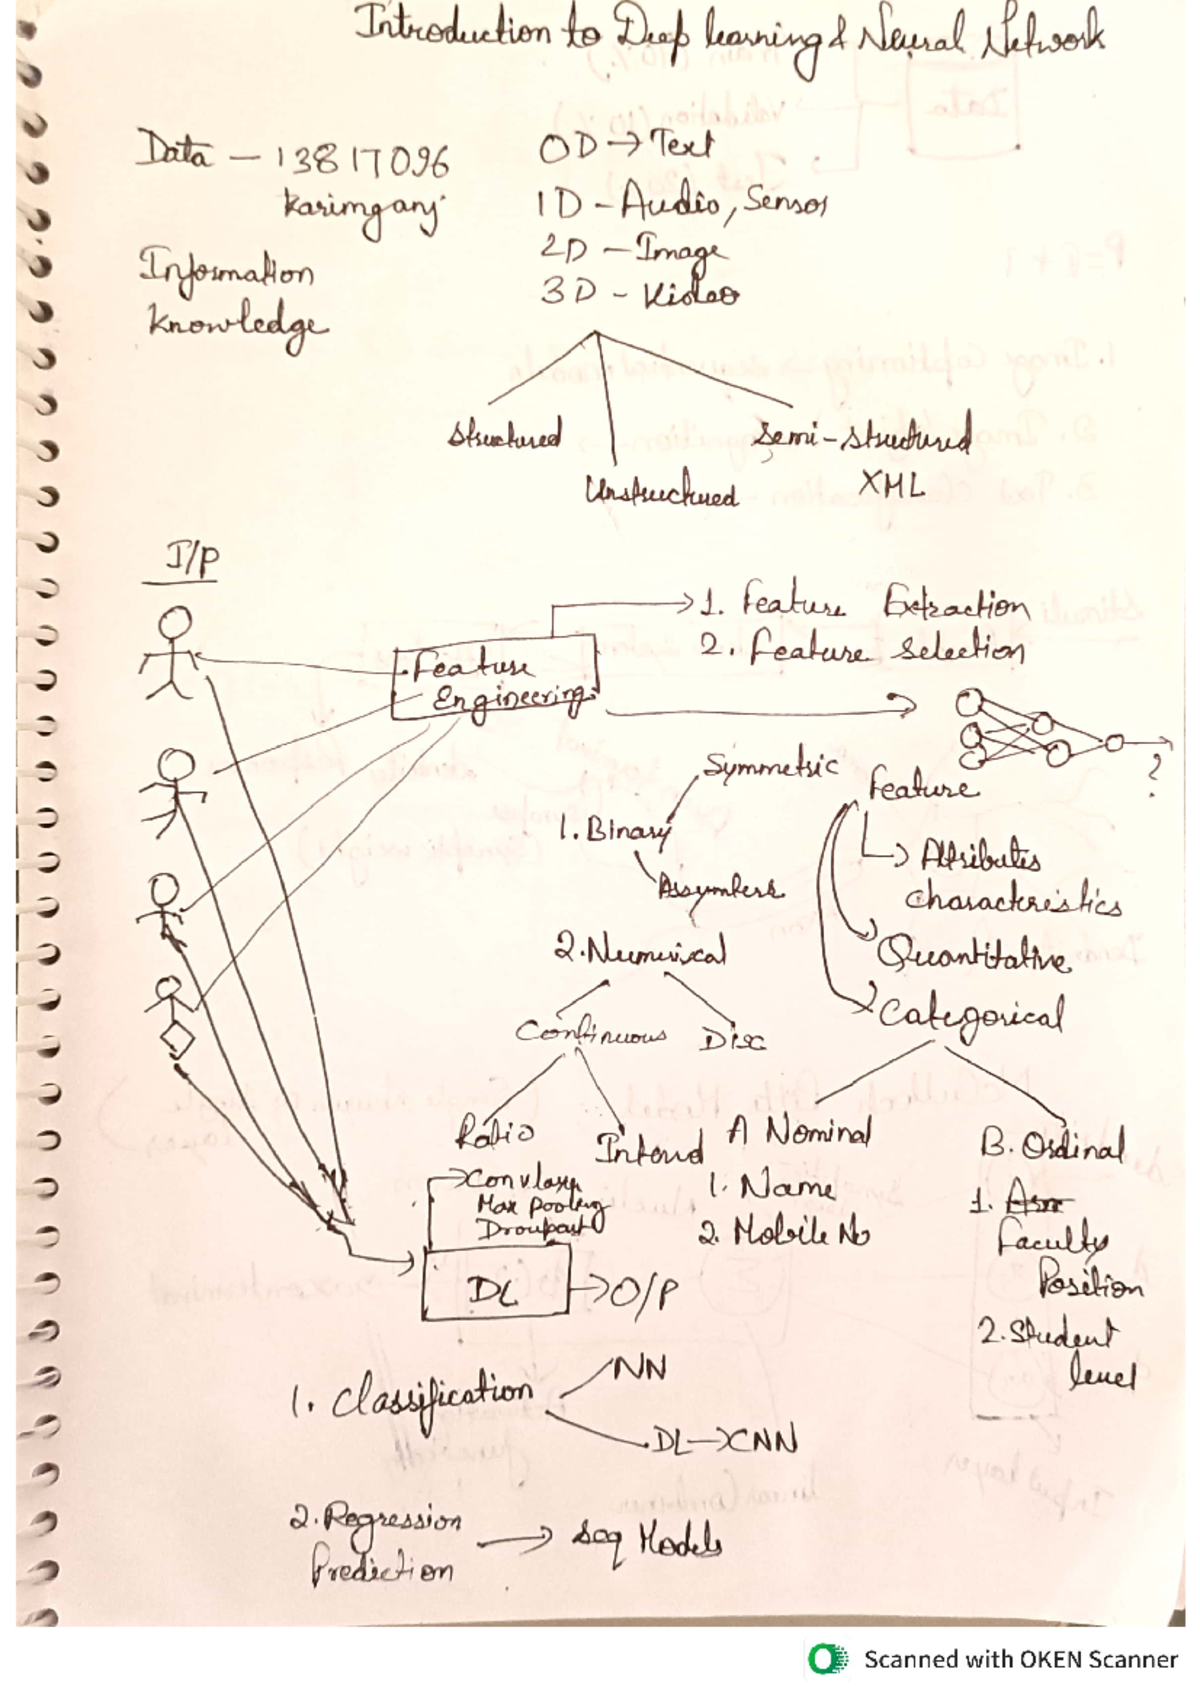 Introduction to Deep learning & Neural Network
Data — 13817096
Karimganj
Information
Knowledge
0D → Text
1D - Audio, Sensor
2D - Image
3D - Video
Structured
Unstructured
Semi-structured
XML
I/P
Feature
Engineering
1. Feature Extraction
2. Feature selection
?
Symmetric
1. Binary
Assymteric
2. Numerical
Continuous
Disc
Ratio
Feature
Attributes
characteristics
Quantitative
Categorical
A Nominal
1. Name
2. Mobile No
B. Ordinal
1.
Faculty
Position
2. Student
level
Max pooling
DL
→ O/P
1. Classification
NN
DL → CNN
2. Regression
Prediction
→ Seq Models
Scanned with OKEN Scanner